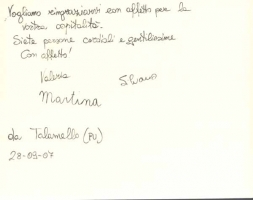 Vogliamo ringraziarvi con affetto per la
vostra ospitalità.
Siete persone cordiali e gentilissime
Con affetto!
Valeria
Martina
da Talamello (PU)
28-09-07